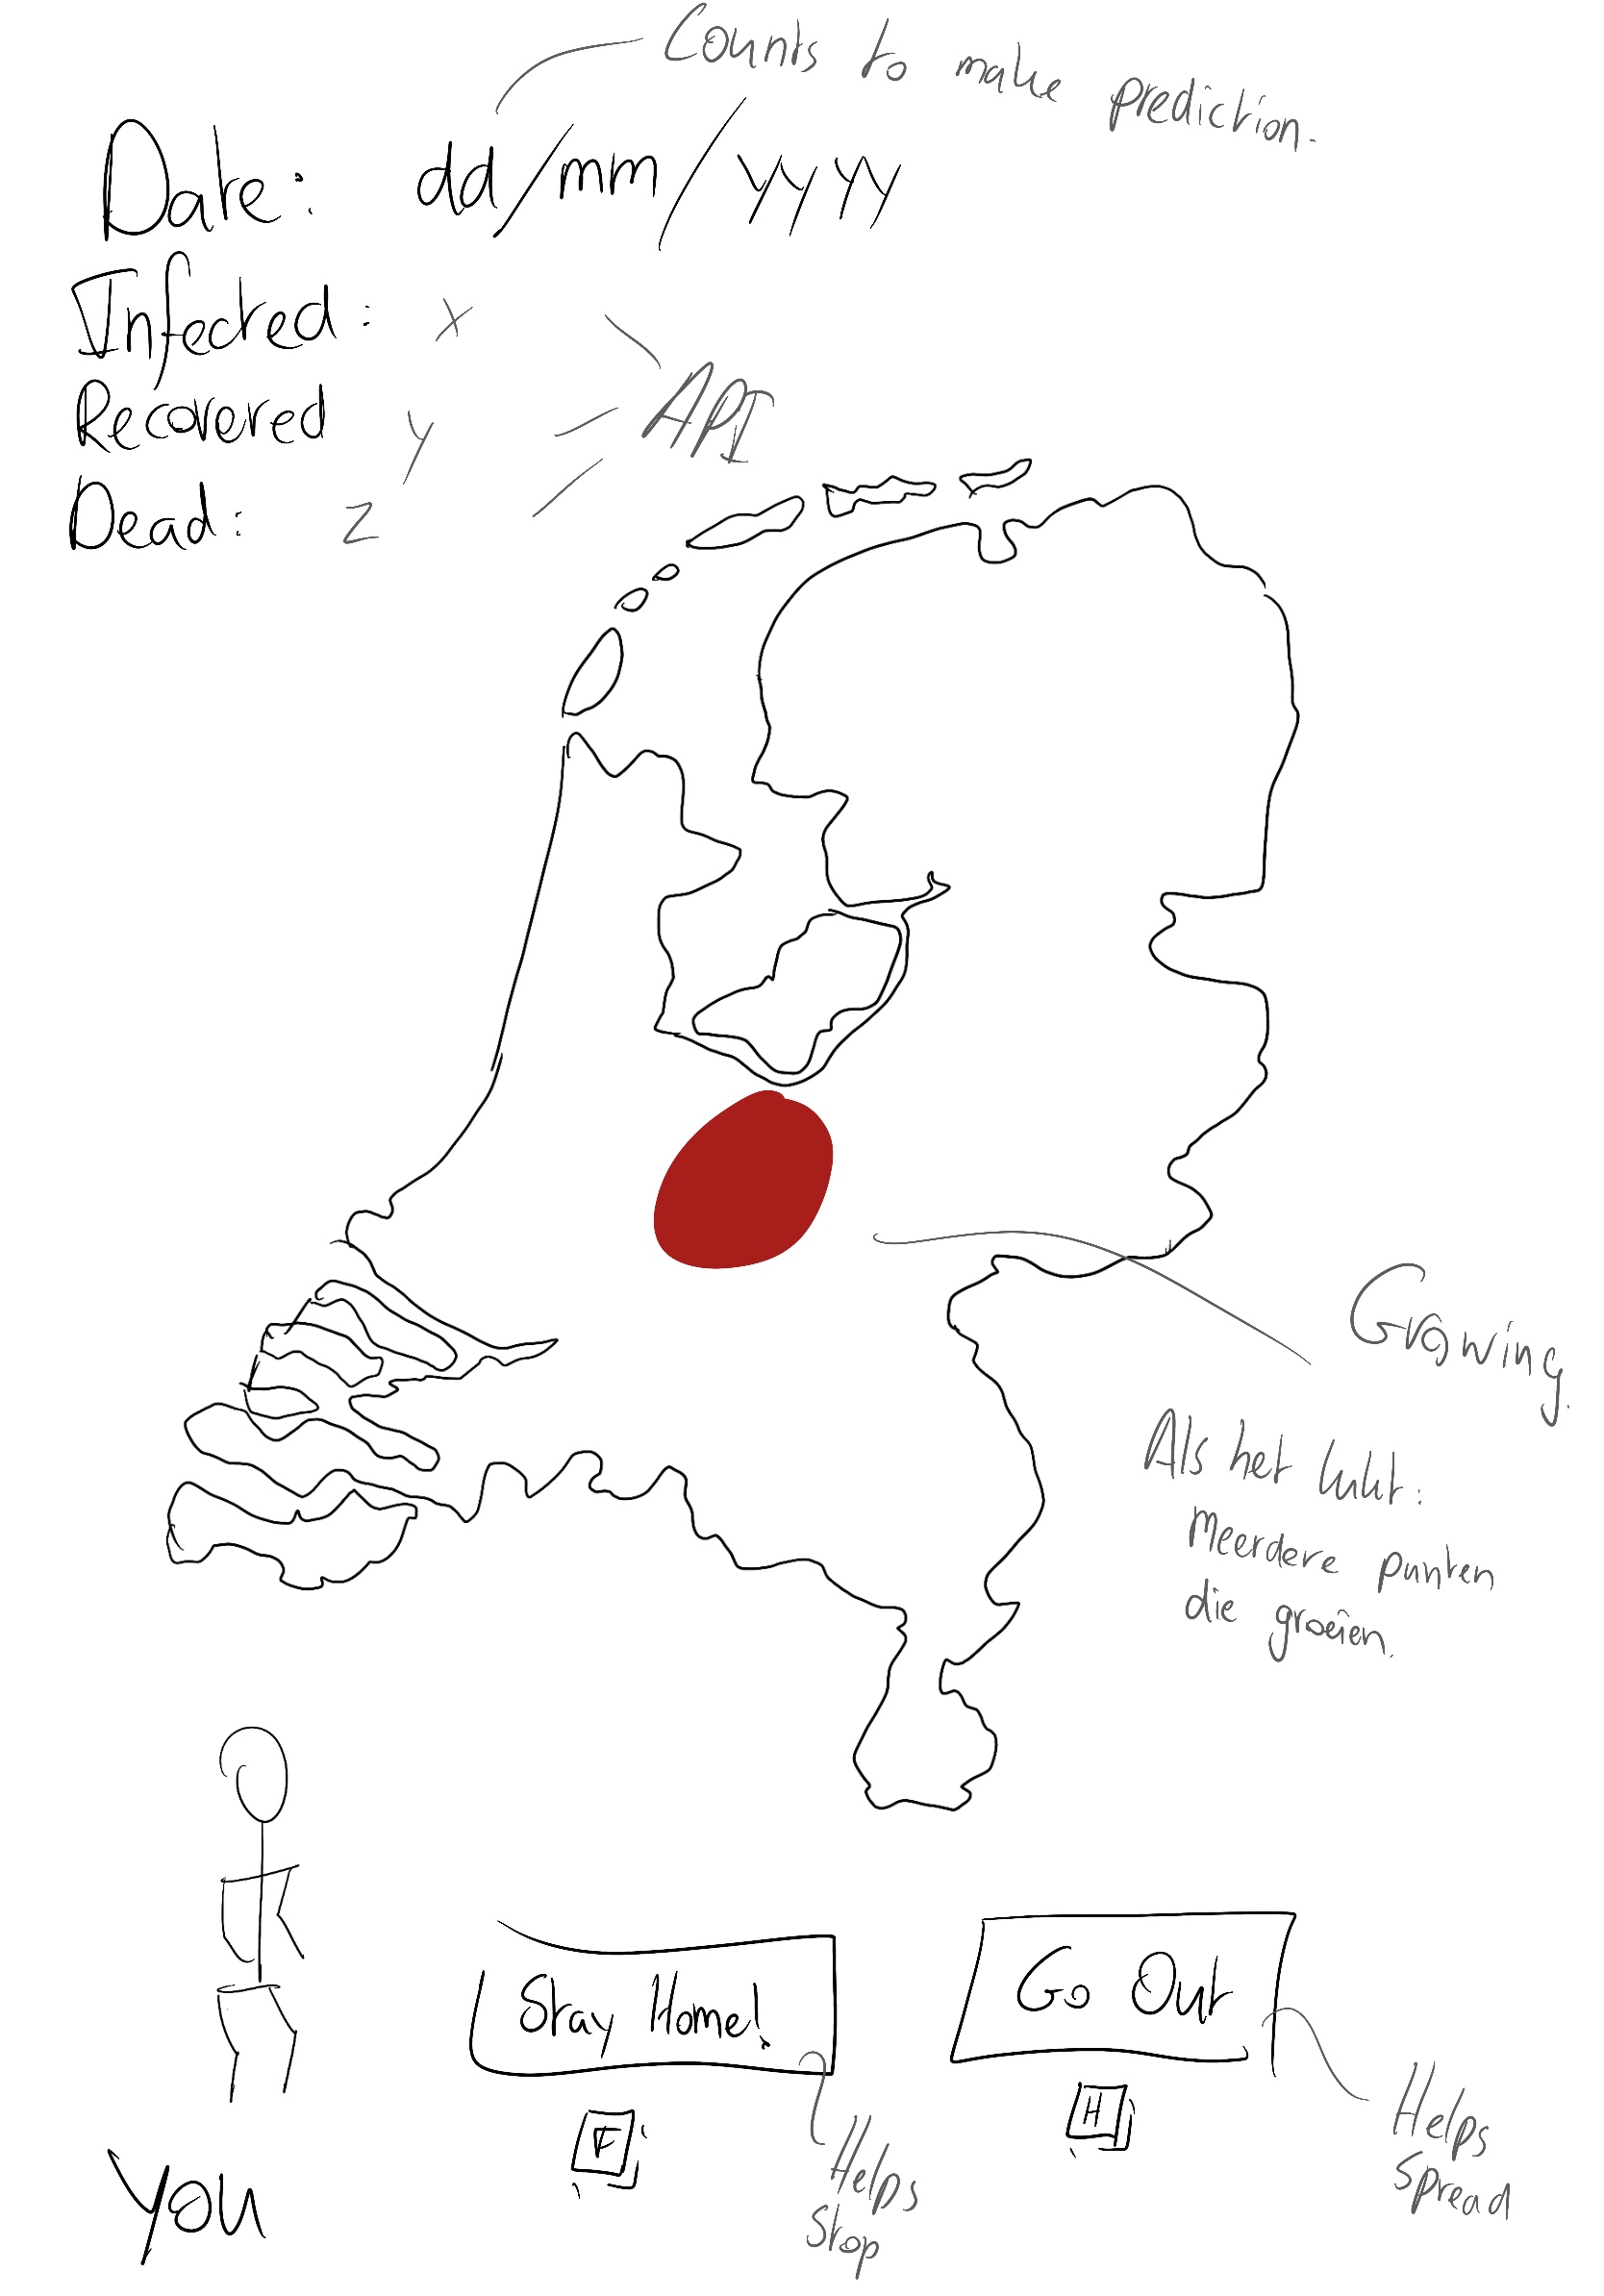 Counts to make prediction.
Date: dd/mm/yyyy
Infected: x
Recovered y
API
Dead: z
Growing.
Als het lukt:
Meerdere punten
die groeien.
Stay Home!
Go Out
F
H
Helps
Stop
Helps
Spread
YOU